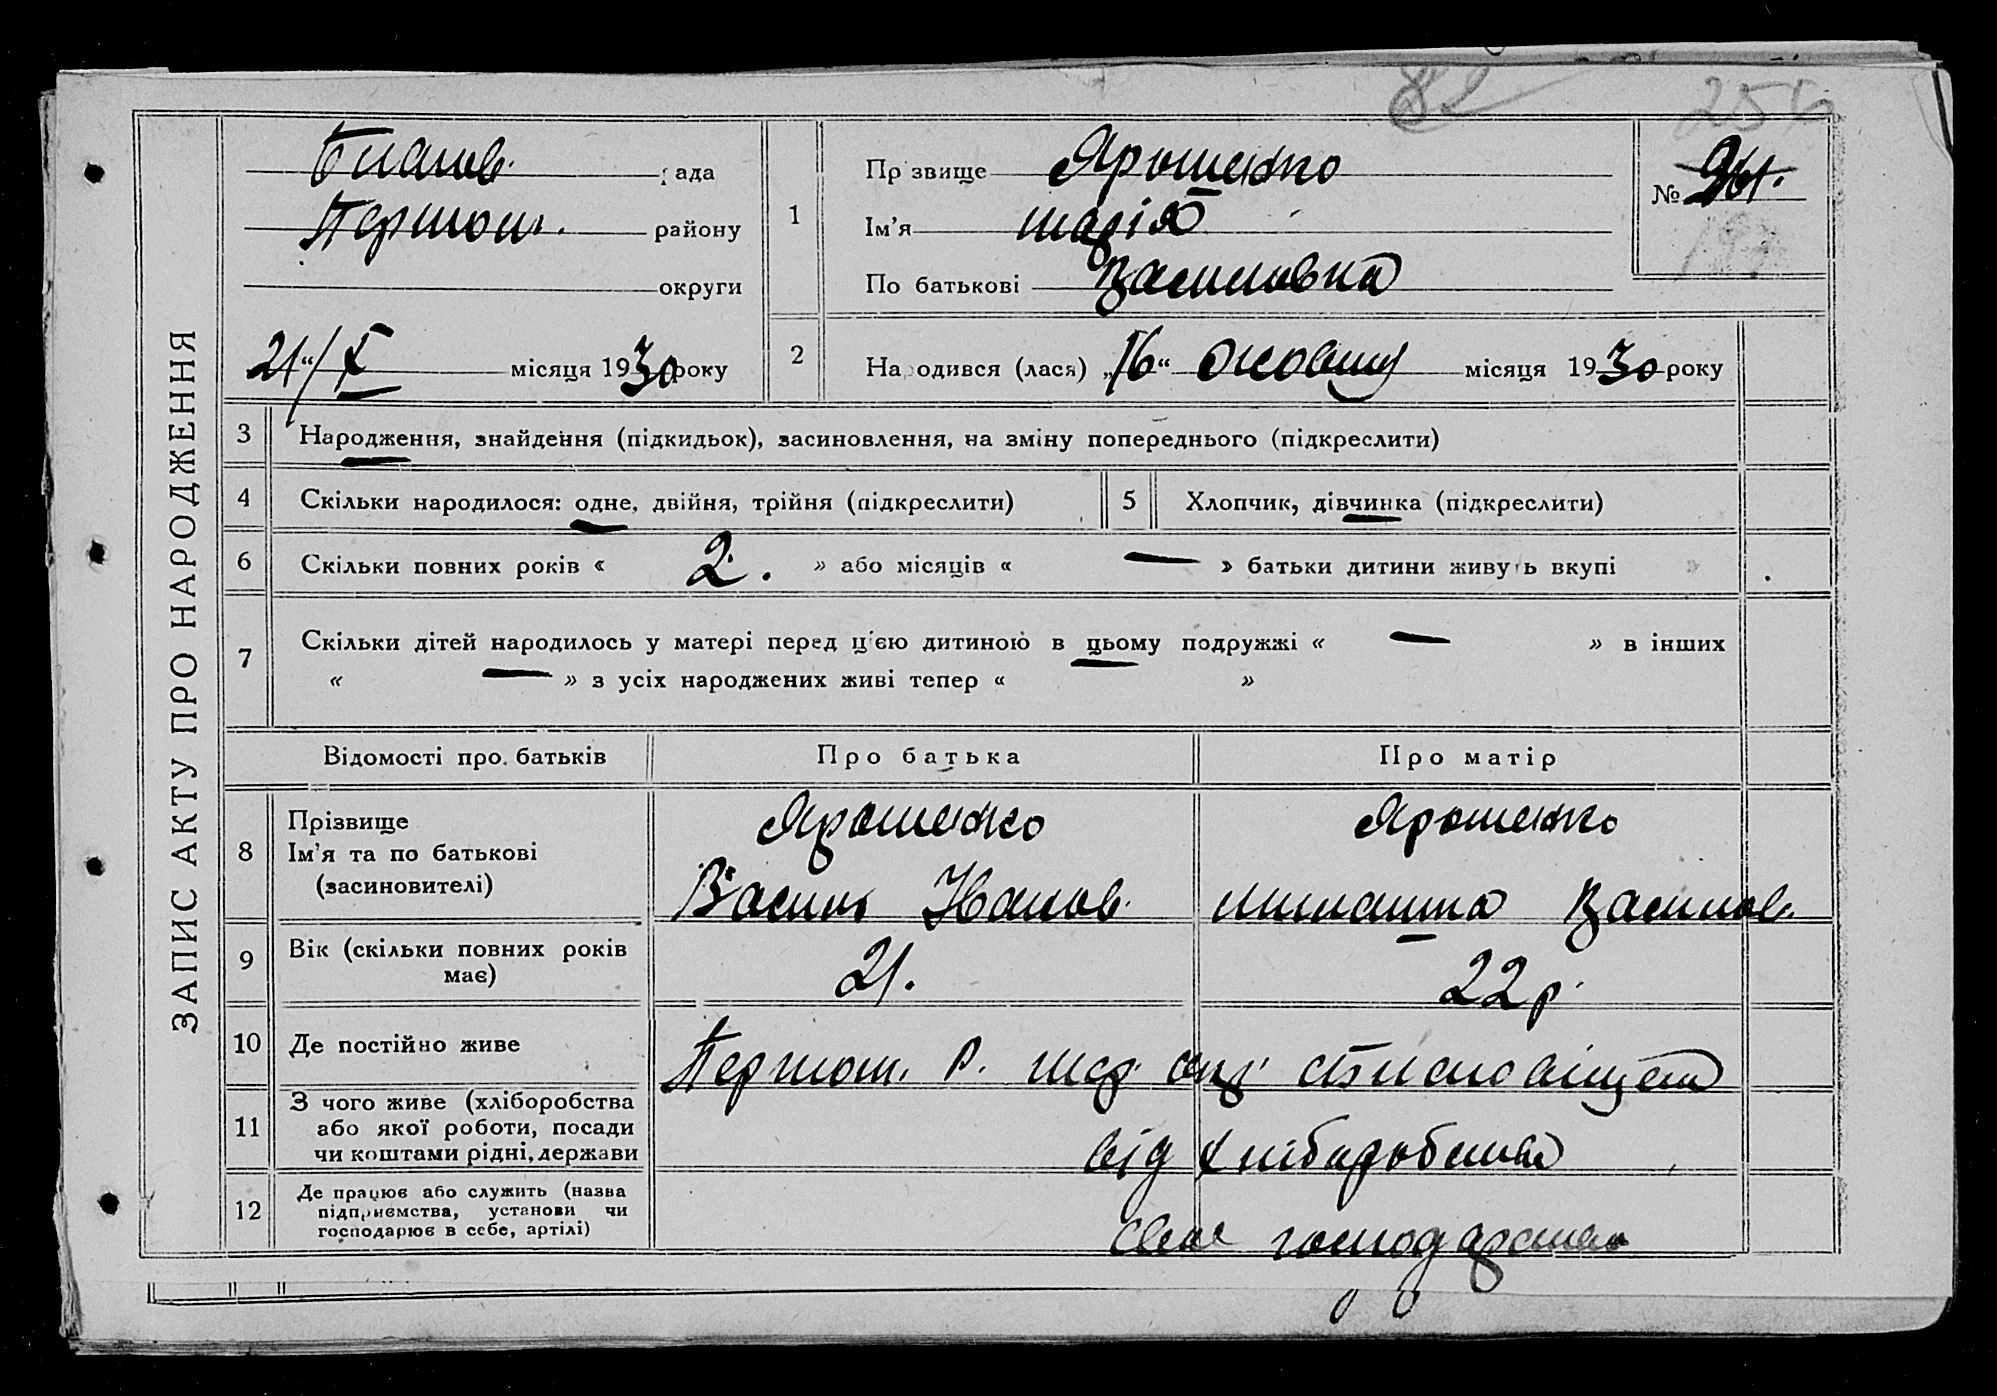 82
ЗАПИС АКТУ ПРО НАРОДЖЕННЯ
рада
Першот. району
округи
21/X місяця 1930 року
1
Прізвище Ярошенко
Ім'я Марія
По батькові Василовна
№ 261.
2
Народився (лася) „16“ жовтня місяця 1930 року
3 Народження, знайдення (підкидьок), засиновлення, на зміну попереднього (підкреслити)
4 Скільки народилося: одне, двійня, трійня (підкреслити) 5 Хлопчик, дівчинка (підкреслити)
6 Скільки повних років « 2. » або місяців « — » батьки дитини живуть вкупі
7 Скільки дітей народилось у матері перед ц'єю дитиною в цьому подружжі « — » в інших
« — » з усіх народжених живі тепер « »
Відомості про батьків Про батька Про матір
8 Прізвище Ярошенко Ярошенко
Ім'я та по батькові
(засиновителі) Василь Иванов. Василов.
9 Вік (скільки повних років має) 21. 22 р.
10 Де постійно живе Першот. Р.
11 З чого живе (хліборобства
або якої роботи, посади
чи коштами рідні, держави від хліборобства
12 Де працює або служить (назва
підприємства, установи чи
господарює в себе, артілі) своє господарство